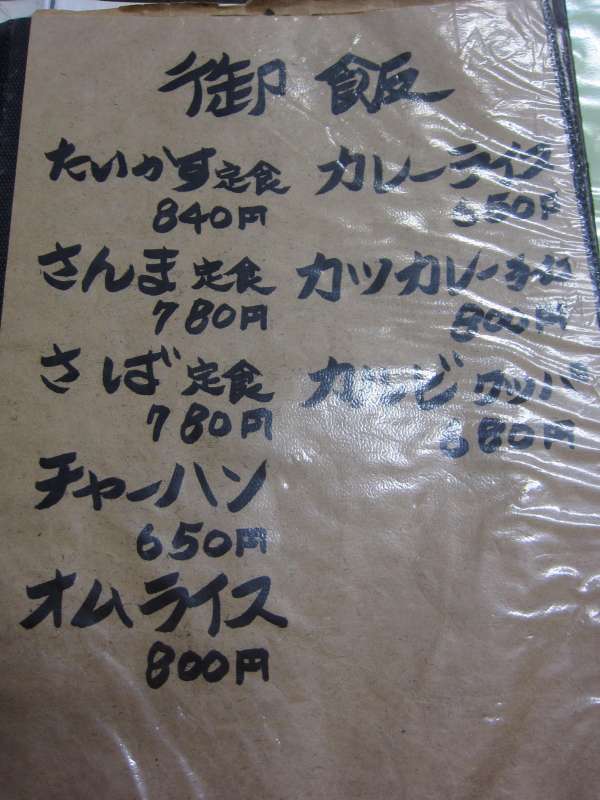 御飯
たいかす定食
840円
さんま定食
780円
さば定食
780円
チャーハン
650円
オムライス
800円
カレーライス
650円
カツカレー
800円
カルビクッパ
680円